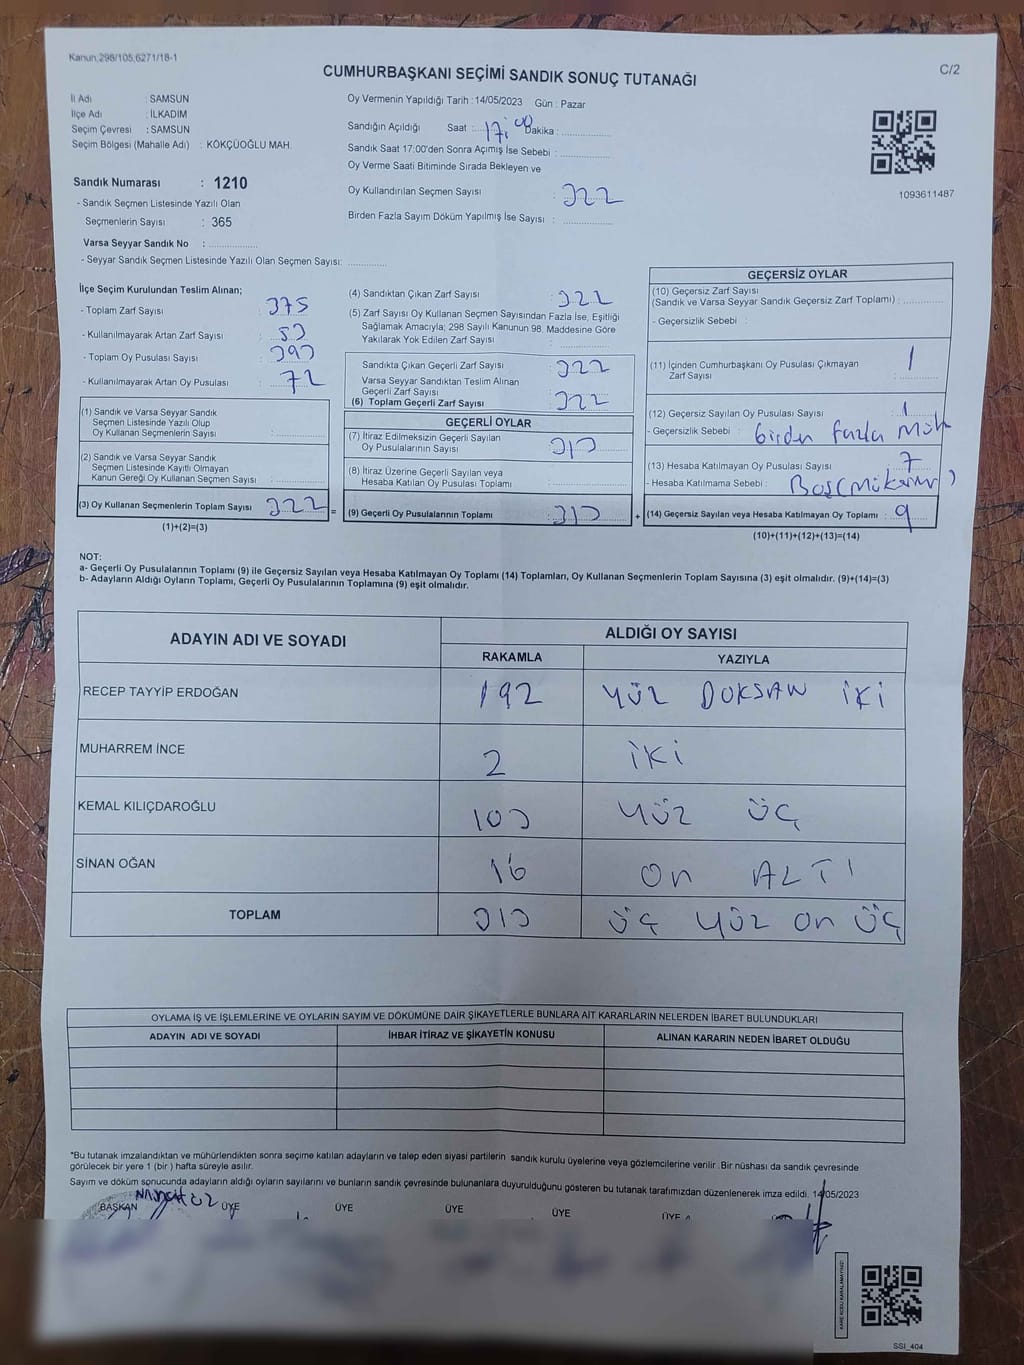 Kanun,298/105,6271/18-1
C/2
CUMHURBAŞKANI SEÇİMİ SANDIK SONUÇ TUTANAĞI
İl Adı : SAMSUN
İlçe Adı : İLKADIM
Seçim Çevresi : SAMSUN
Seçim Bölgesi (Mahalle Adı) : KÖKÇÜOĞLU MAH.
Sandık Numarası : 1210
- Sandık Seçmen Listesinde Yazılı Olan
Seçmenlerin Sayısı : 365
Varsa Seyyar Sandık No :
- Seyyar Sandık Seçmen Listesinde Yazılı Olan Seçmen Sayısı:
Oy Vermenin Yapıldığı Tarih : 14/05/2023 Gün : Pazar
Sandığın Açıldığı Saat : 17:00 Dakika :
Sandık Saat 17:00'den Sonra Açımış İse Sebebi :
Oy Verme Saati Bitiminde Sırada Bekleyen ve
Oy Kullandırılan Seçmen Sayısı : 322
Birden Fazla Sayım Döküm Yapılmış İse Sayısı :
1093611487
İlçe Seçim Kurulundan Teslim Alınan;
- Toplam Zarf Sayısı : 375
- Kullanılmayarak Artan Zarf Sayısı : 53
- Toplam Oy Pusulası Sayısı : 393
- Kullanılmayarak Artan Oy Pusulası : 72
(1) Sandık ve Varsa Seyyar Sandık
Seçmen Listesinde Yazılı Olup
Oy Kullanan Seçmenlerin Sayısı :
(2) Sandık ve Varsa Seyyar Sandık
Seçmen Listesinde Kayıtlı Olmayan
Kanun Gereği Oy Kullanan Seçmen Sayısı :
(3) Oy Kullanan Seçmenlerin Toplam Sayısı : 322 =
(1)+(2)=(3)
(4) Sandıktan Çıkan Zarf Sayısı : 322
(5) Zarf Sayısı Oy Kullanan Seçmen Sayısından Fazla İse, Eşitliği
Sağlamak Amacıyla; 298 Sayılı Kanunun 98. Maddesine Göre
Yakılarak Yok Edilen Zarf Sayısı :
Sandıkta Çıkan Geçerli Zarf Sayısı : 322
Varsa Seyyar Sandıktan Teslim Alınan
Geçerli Zarf Sayısı :
(6) Toplam Geçerli Zarf Sayısı : 322
GEÇERLİ OYLAR
(7) İtiraz Edilmeksizin Geçerli Sayılan
Oy Pusulalarının Sayısı : 313
(8) İtiraz Üzerine Geçerli Sayılan veya
Hesaba Katılan Oy Pusulası Toplamı :
(9) Geçerli Oy Pusulalarının Toplamı : 313 +
GEÇERSİZ OYLAR
(10) Geçersiz Zarf Sayısı
(Sandık ve Varsa Seyyar Sandık Geçersiz Zarf Toplamı) :
- Geçersizlik Sebebi :
(11) İçinden Cumhurbaşkanı Oy Pusulası Çıkmayan
Zarf Sayısı : 1
(12) Geçersiz Sayılan Oy Pusulası Sayısı : 1
- Geçersizlik Sebebi : birden fazla Müh
(13) Hesaba Katılmayan Oy Pusulası Sayısı : 7
- Hesaba Katılmama Sebebi : Boş(mükerrer)
(14) Geçersiz Sayılan veya Hesaba Katılmayan Oy Toplamı : 9
(10)+(11)+(12)+(13)=(14)
NOT:
a- Geçerli Oy Pusulalarının Toplamı (9) ile Geçersiz Sayılan veya Hesaba Katılmayan Oy Toplamı (14) Toplamları, Oy Kullanan Seçmenlerin Toplam Sayısına (3) eşit olmalıdır. (9)+(14)=(3)
b- Adayların Aldığı Oyların Toplamı, Geçerli Oy Pusulalarının Toplamına (9) eşit olmalıdır.
ADAYIN ADI VE SOYADI
ALDIĞI OY SAYISI
RAKAMLA YAZIYLA
RECEP TAYYİP ERDOĞAN 192 YÜZ DOKSAN İKİ
MUHARREM İNCE 2 İKİ
KEMAL KILIÇDAROĞLU 103 YÜZ ÜÇ
SİNAN OĞAN 16 On ALTI
TOPLAM 313 ÜÇ YÜZ On ÜÇ
OYLAMA İŞ VE İŞLEMLERİNE VE OYLARIN SAYIM VE DÖKÜMÜNE DAİR ŞİKAYETLERLE BUNLARA AİT KARARLARIN NELERDEN İBARET BULUNDUKLARI
ADAYIN ADI VE SOYADI İHBAR İTİRAZ VE ŞİKAYETİN KONUSU ALINAN KARARIN NEDEN İBARET OLDUĞU
*Bu tutanak imzalandıktan ve mühürlendikten sonra seçime katılan adayların ve talep eden siyasi partilerin sandık kurulu üyelerine veya gözlemcilerine verilir .Bir nüshası da sandık çevresinde
görülecek bir yere 1 (bir ) hafta süreyle asılır.
Sayım ve döküm sonucunda adayların aldığı oyların sayılarını ve bunların sandık çevresinde bulunanlara duyurulduğunu gösteren bu tutanak tarafımızdan düzenlenerek imza edildi. 14/05/2023
BAŞKAN ÜYE ÜYE ÜYE ÜYE ÜYE
KARE KODU KARALAMAYINIZ!
SSI_404